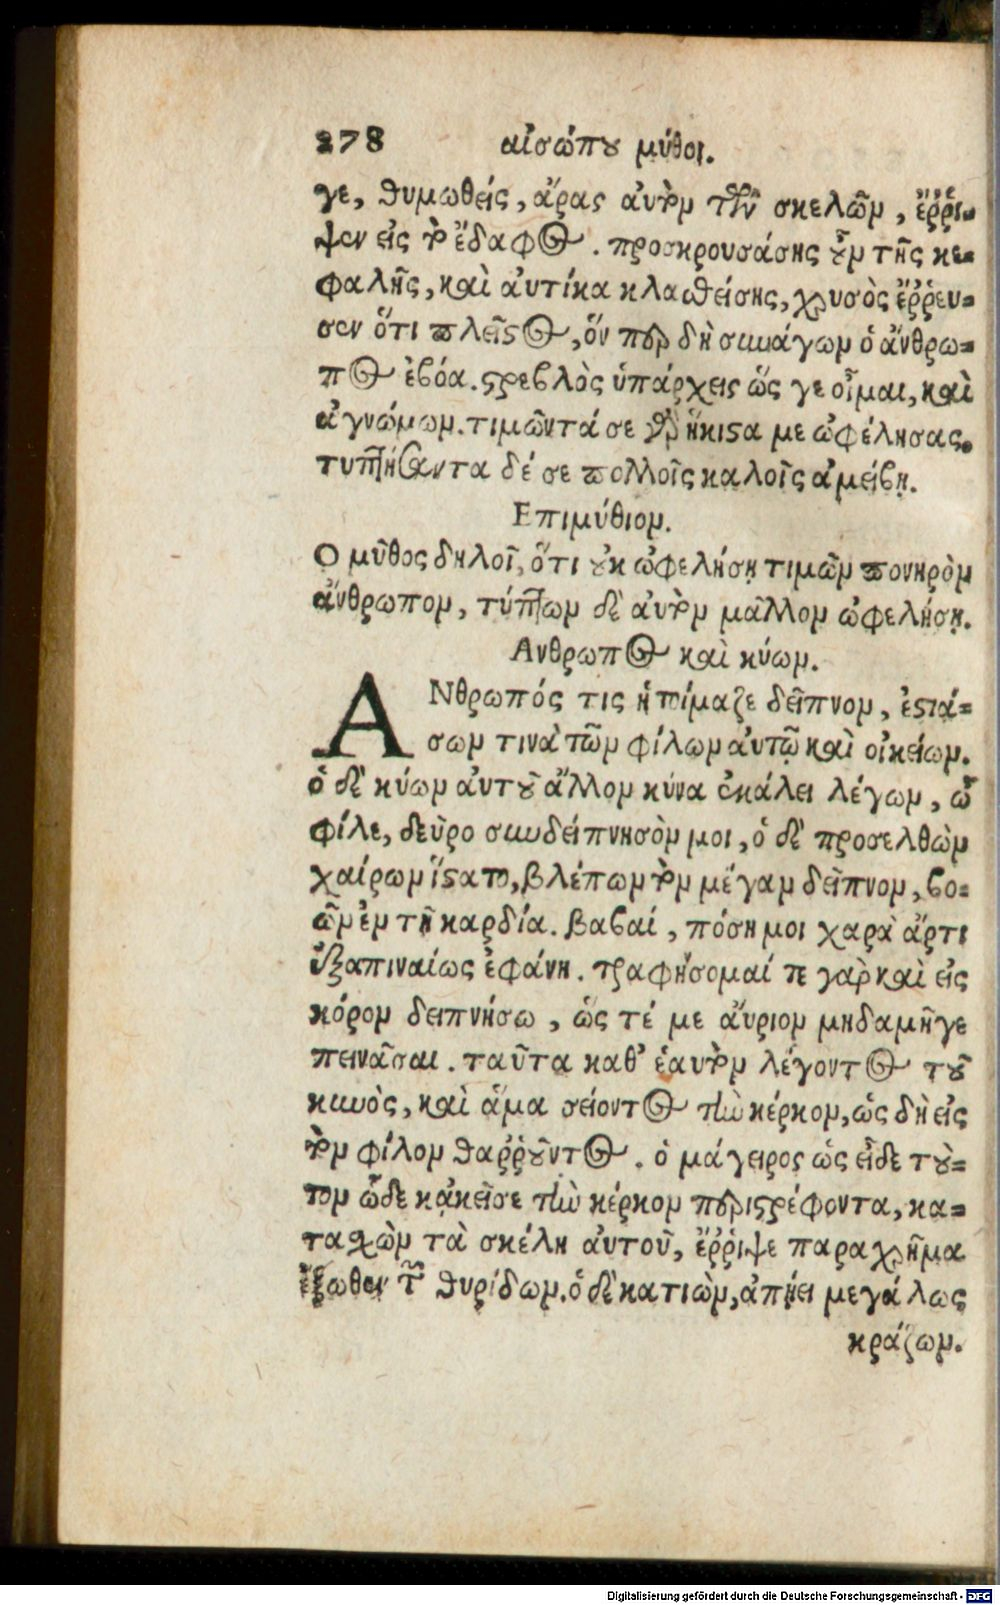 278 αἰσώπου μύθοι.
γε, θυμωθείς, ἄρας αὐτὸν τῶν σκελῶν, ἔῤῥι-
ψεν εἰς τὸ ἔδαφος. προσκρουσάσης οὖν τῆς κε-
φαλῆς, καὶ αὐτίκα κλασθείσης, χρυσὸς ἔῤῥευ-
σεν ὅτι πλεῖστος, ὅν περ δὴ συνάγων ὁ ἄνθρω-
πος ἐβόα. στρεβλὸς ὑπάρχεις ὥς γε οἶμαι, καὶ
ἀγνώμων. τιμῶντά σε γὰρ ἥκιστα με ὠφέλησας.
τυπτήσαντα δέ σε πολλοῖς καλοῖς ἀμείβῃ.
Επιμύθιον.
Ο μῦθος δηλοῖ, ὅτι οὐκ ὠφελήσῃ τιμῶν πονηρὸν
ἄνθρωπον, τύπτων δὲ αὐτὸν μᾶλλον ὠφελήσῃ.
Ανθρωπος καὶ κύων.
ΑΝθρωπός τις ἡτοίμαζε δεῖπνον, ἑστιά-
σων τινὰ τῶν φίλων αὐτῷ καὶ οἰκείων.
ὁ δὲ κύων αὐτοῦ ἄλλον κύνα ἐκάλει λέγων, ὦ
φίλε, δεῦρο συνδείπνησόν μοι, ὁ δὲ προσελθὼν
χαίρων ἵστατο, βλέπων τὸν μέγαν δεῖπνον, βο-
ῶν ἐν τῇ καρδίᾳ. βαβαί, πόση μοι χαρὰ ἄρτι
ἐξαπιναίως ἐφάνη. τραφήσομαί τε γὰρ καὶ εἰς
κόρον δειπνήσω, ὥς τέ με αὔριον μηδαμῆγε
πεινᾶσαι. ταῦτα καθ' ἑαυτὸν λέγοντος τοῦ
κυνὸς, καὶ ἅμα σείοντος τὴν κέρκον, ὡς δὴ εἰς
τὸν φίλον θαῤῥοῦντος. ὁ μάγειρος ὡς εἶδε τοῦ-
τον ὧδε κἀκεῖσε τὴν κέρκον περιστρέφοντα, κα-
τασχὼν τὰ σκέλη αὐτοῦ, ἔῤῥιψε παραχρῆμα
ἔξωθεν τῶν θυρίδων. ὁ δὲ κατιὼν, ἀπῄει μεγάλως
κράζων.
Digitalisierung gefördert durch die Deutsche Forschungsgemeinschaft - DFG